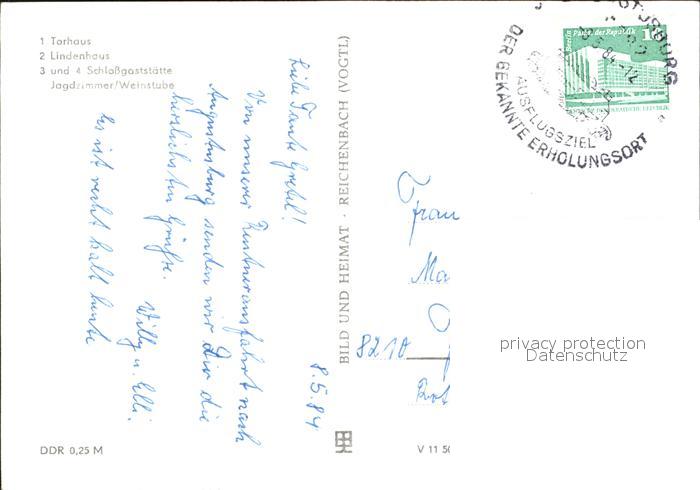 1 Torhaus
2 Lindenhaus
3 und 4 Schloßgaststätte
Jagdzimmer/Weinstube
8.5.84
Liebe Tante Gretel!
Von unserer Rentnerausfahrt nach
Augustusburg senden wir Dir die
herzlichsten Grüße.
Willy u. Elli.
Es ist recht kalt heute
DDR 0,25 M
BILD UND HEIMAT · REICHENBACH (VOGTL)
V 11 50
AUGUSTUSBURG
DER BEKANNTE ERHOLUNGSORT
AUSFLUGSZIEL
Berlin Palast der Republik
10
DEUTSCHE DEMOKRATISCHE REPUBLIK
Frau
Ma
8210
privacy protection
Datenschutz